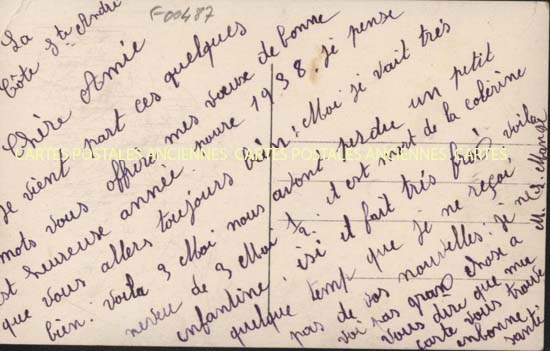 F-00487
La
Côte St André
Chère Amie
Je vient part ces quelques
mots vous offrire mes vœux de bonne
et heureuse année 1938. je pense
que vous allers toujours bien. Moi je vait très
bien. voila 3 Moi nous avont perdu un petit
neveu de 3 Moi 1/2 il est mort de la colérine
infantine. isi il fait très froi voila
quelque temp que je ne reçoi
pas de vos nouvelles. je ne
voi pas gran chose a
vous dire que ma
carte vous trouve
enbonne
santé
CARTES POSTALES ANCIENNES
CARTES POSTALES ANCIENNES
CARTES POSTALES ANCIENNES